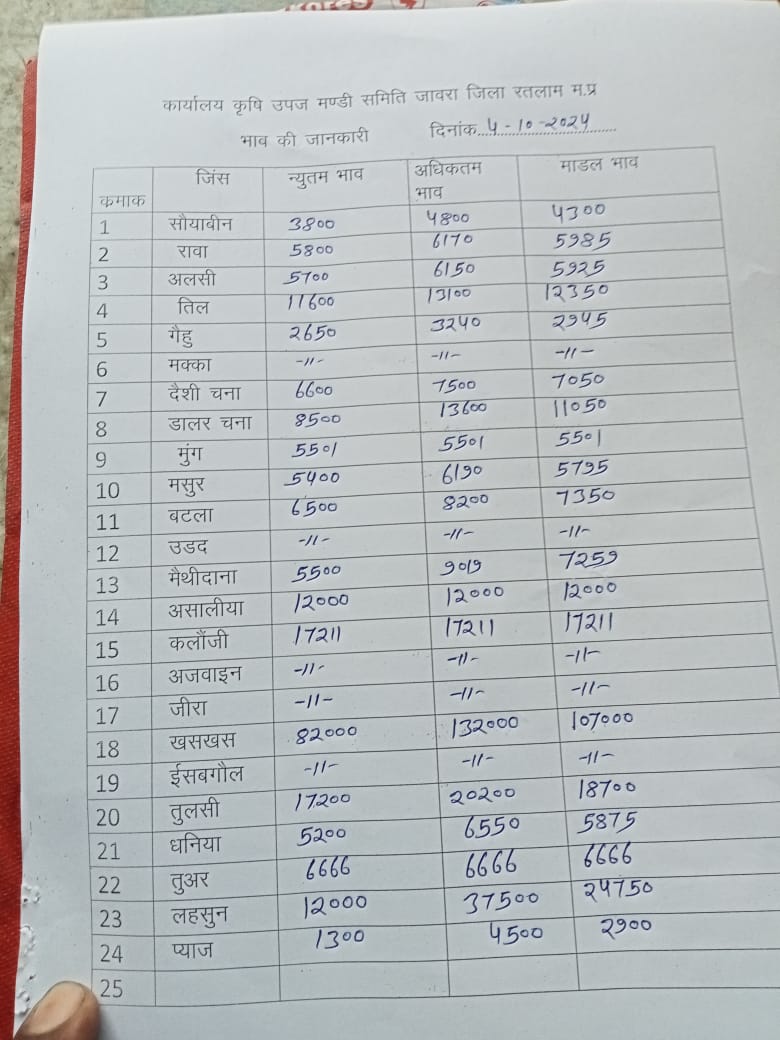 कार्यालय कृषि उपज मण्डी समिति जावरा जिला रतलाम म.प्र
भाव की जानकारी दिनांक...4-10-2024
कमाक जिंस न्युतम भाव अधिकतम भाव माडल भाव
1 सौयाबीन 3800 4800 4300
2 रावा 5800 6170 5985
3 अलसी 5700 6150 5925
4 तिल 11600 13100 12350
5 गैहु 2650 3240 2945
6 मक्का -11- -11- -11-
7 दैशी चना 6600 7500 7050
8 डालर चना 8500 13600 11050
9 मुंग 5501 5501 5501
10 मसुर 5400 6190 5795
11 बटला 6500 8200 7350
12 उडद -11- -11- -11-
13 मैथीदाना 5500 9019 7259
14 असालीया 12000 12000 12000
15 कलौंजी 17211 17211 17211
16 अजवाइन -11- -11- -11-
17 जीरा -11- -11- -11-
18 खसखस 82000 132000 107000
19 ईसबगौल -11- -11- -11-
20 तुलसी 17200 20200 18700
21 धनिया 5200 6550 5875
22 तुअर 6666 6666 6666
23 लहसुन 12000 37500 24750
24 प्याज 1300 4500 2900
25